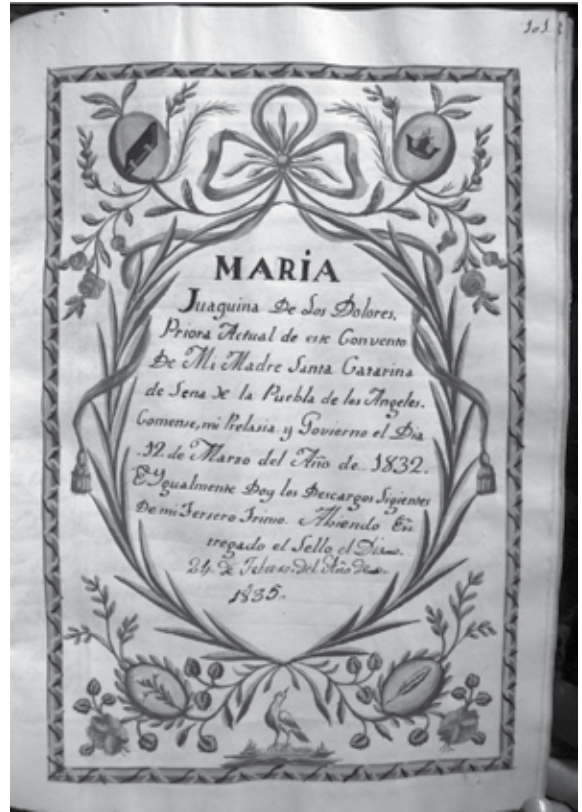 101
MARİA
Juaquina De Los Dolores,
Priora Actual de este Convento
De Mi Madre Santa Catarina
de Sena De la Puebla de los Angeles.
Comense, mi Prelasia. y Govierno el Dia
12. de Marzo del Año de 1832.
Y Ygualmente Doy los Descargos Sigientes
De mi Tersero Trinio. Abiendo En
tregado el Sello el Dia
24. de Febrero. del Año de
1835.